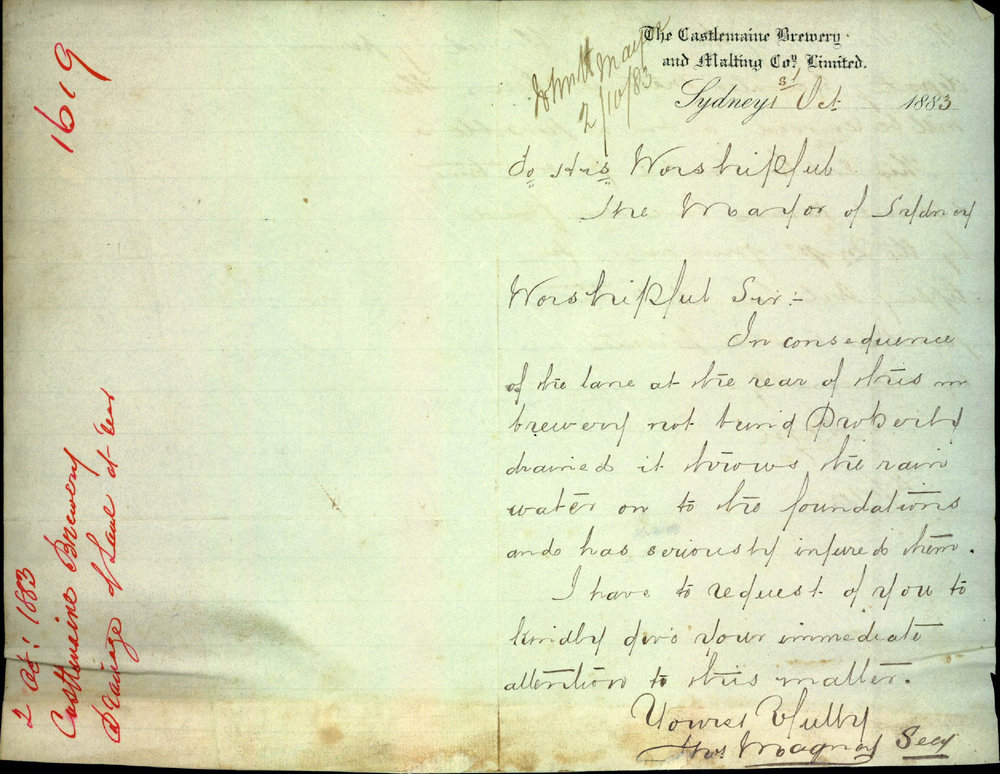 1619
2 Oct: 1883
Castlemaine Brewery
Drainage of Lane at rear
2/10/83
The Castlemaine Brewery
and Malting Coy. Limited.
Sydney 1st Oct 1883
To His Worshipful
The Mayor of Sydney
Worshipful Sir:-
In consequence
of the lane at the rear of this
brewery not being Properly
drained it throws the rain
water on to the foundations
and has seriously injured them.
I have to request of you to
kindly give your immediate
attention to this matter.
Yours Tfully
Thos Magney Secy